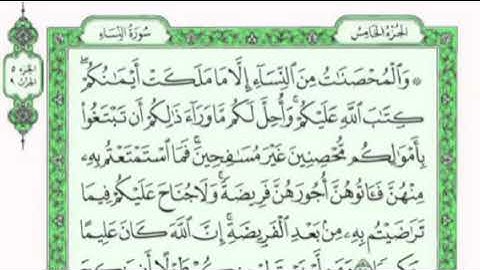 الجزء الخامس
سورة النساء
الجزء
۞ وَالْمُحْصَنَاتُ مِنَ النِّسَاءِ إِلَّا مَا مَلَكَتْ أَيْمَانُكُمْ ۖ
كِتَابَ اللَّهِ عَلَيْكُمْ ۚ وَأُحِلَّ لَكُم مَّا وَرَاءَ ذَالِكُمْ أَن تَبْتَغُوا
بِأَمْوَالِكُم مُّحْصِنِينَ غَيْرَ مُسَافِحِينَ ۚ فَمَا اسْتَمْتَعْتُم بِهِ
مِنْهُنَّ فَآتُوهُنَّ أُجُورَهُنَّ فَرِيضَةً ۚ وَلَا جُنَاحَ عَلَيْكُمْ فِيمَا
تَرَاضَيْتُم بِهِ مِن بَعْدِ الْفَرِيضَةِ ۚ إِنَّ اللَّهَ كَانَ عَلِيمًا